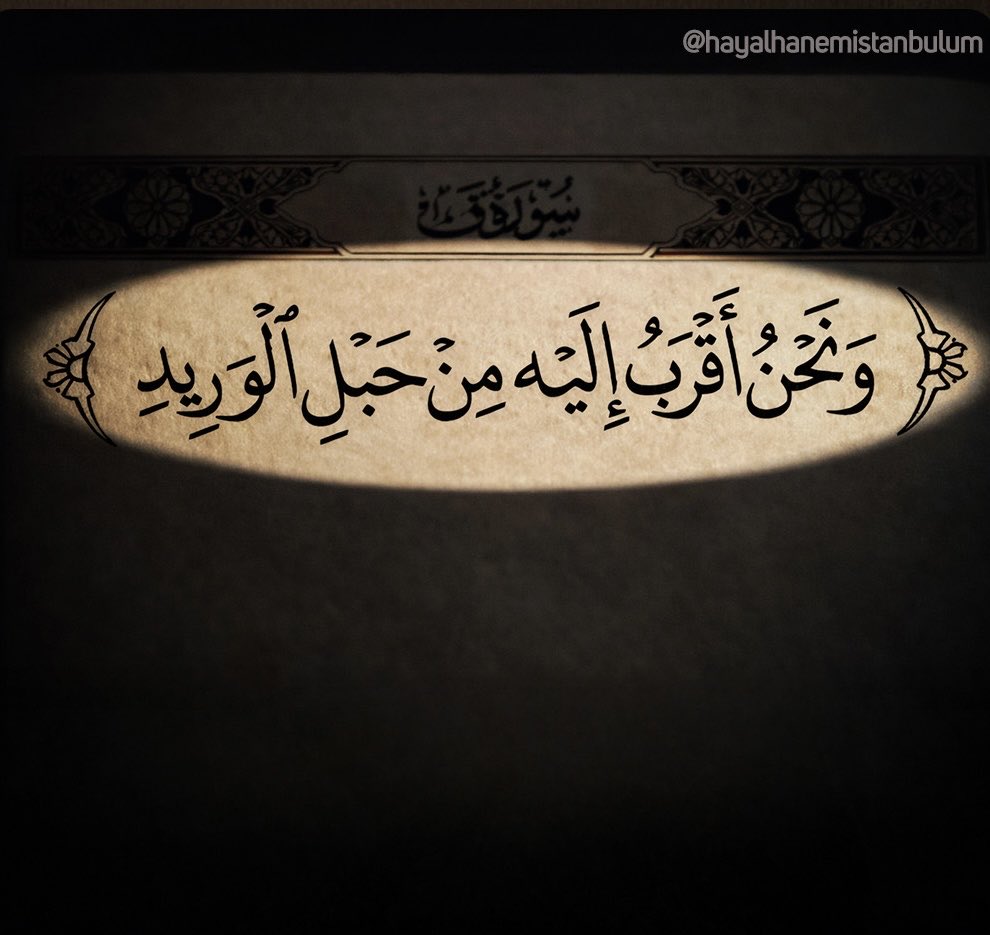 @hayalhanemistanbulum
سُورَةُ ق
وَنَحْنُ أَقْرَبُ إِلَيْهِ مِنْ حَبْلِ ٱلْوَرِيدِ